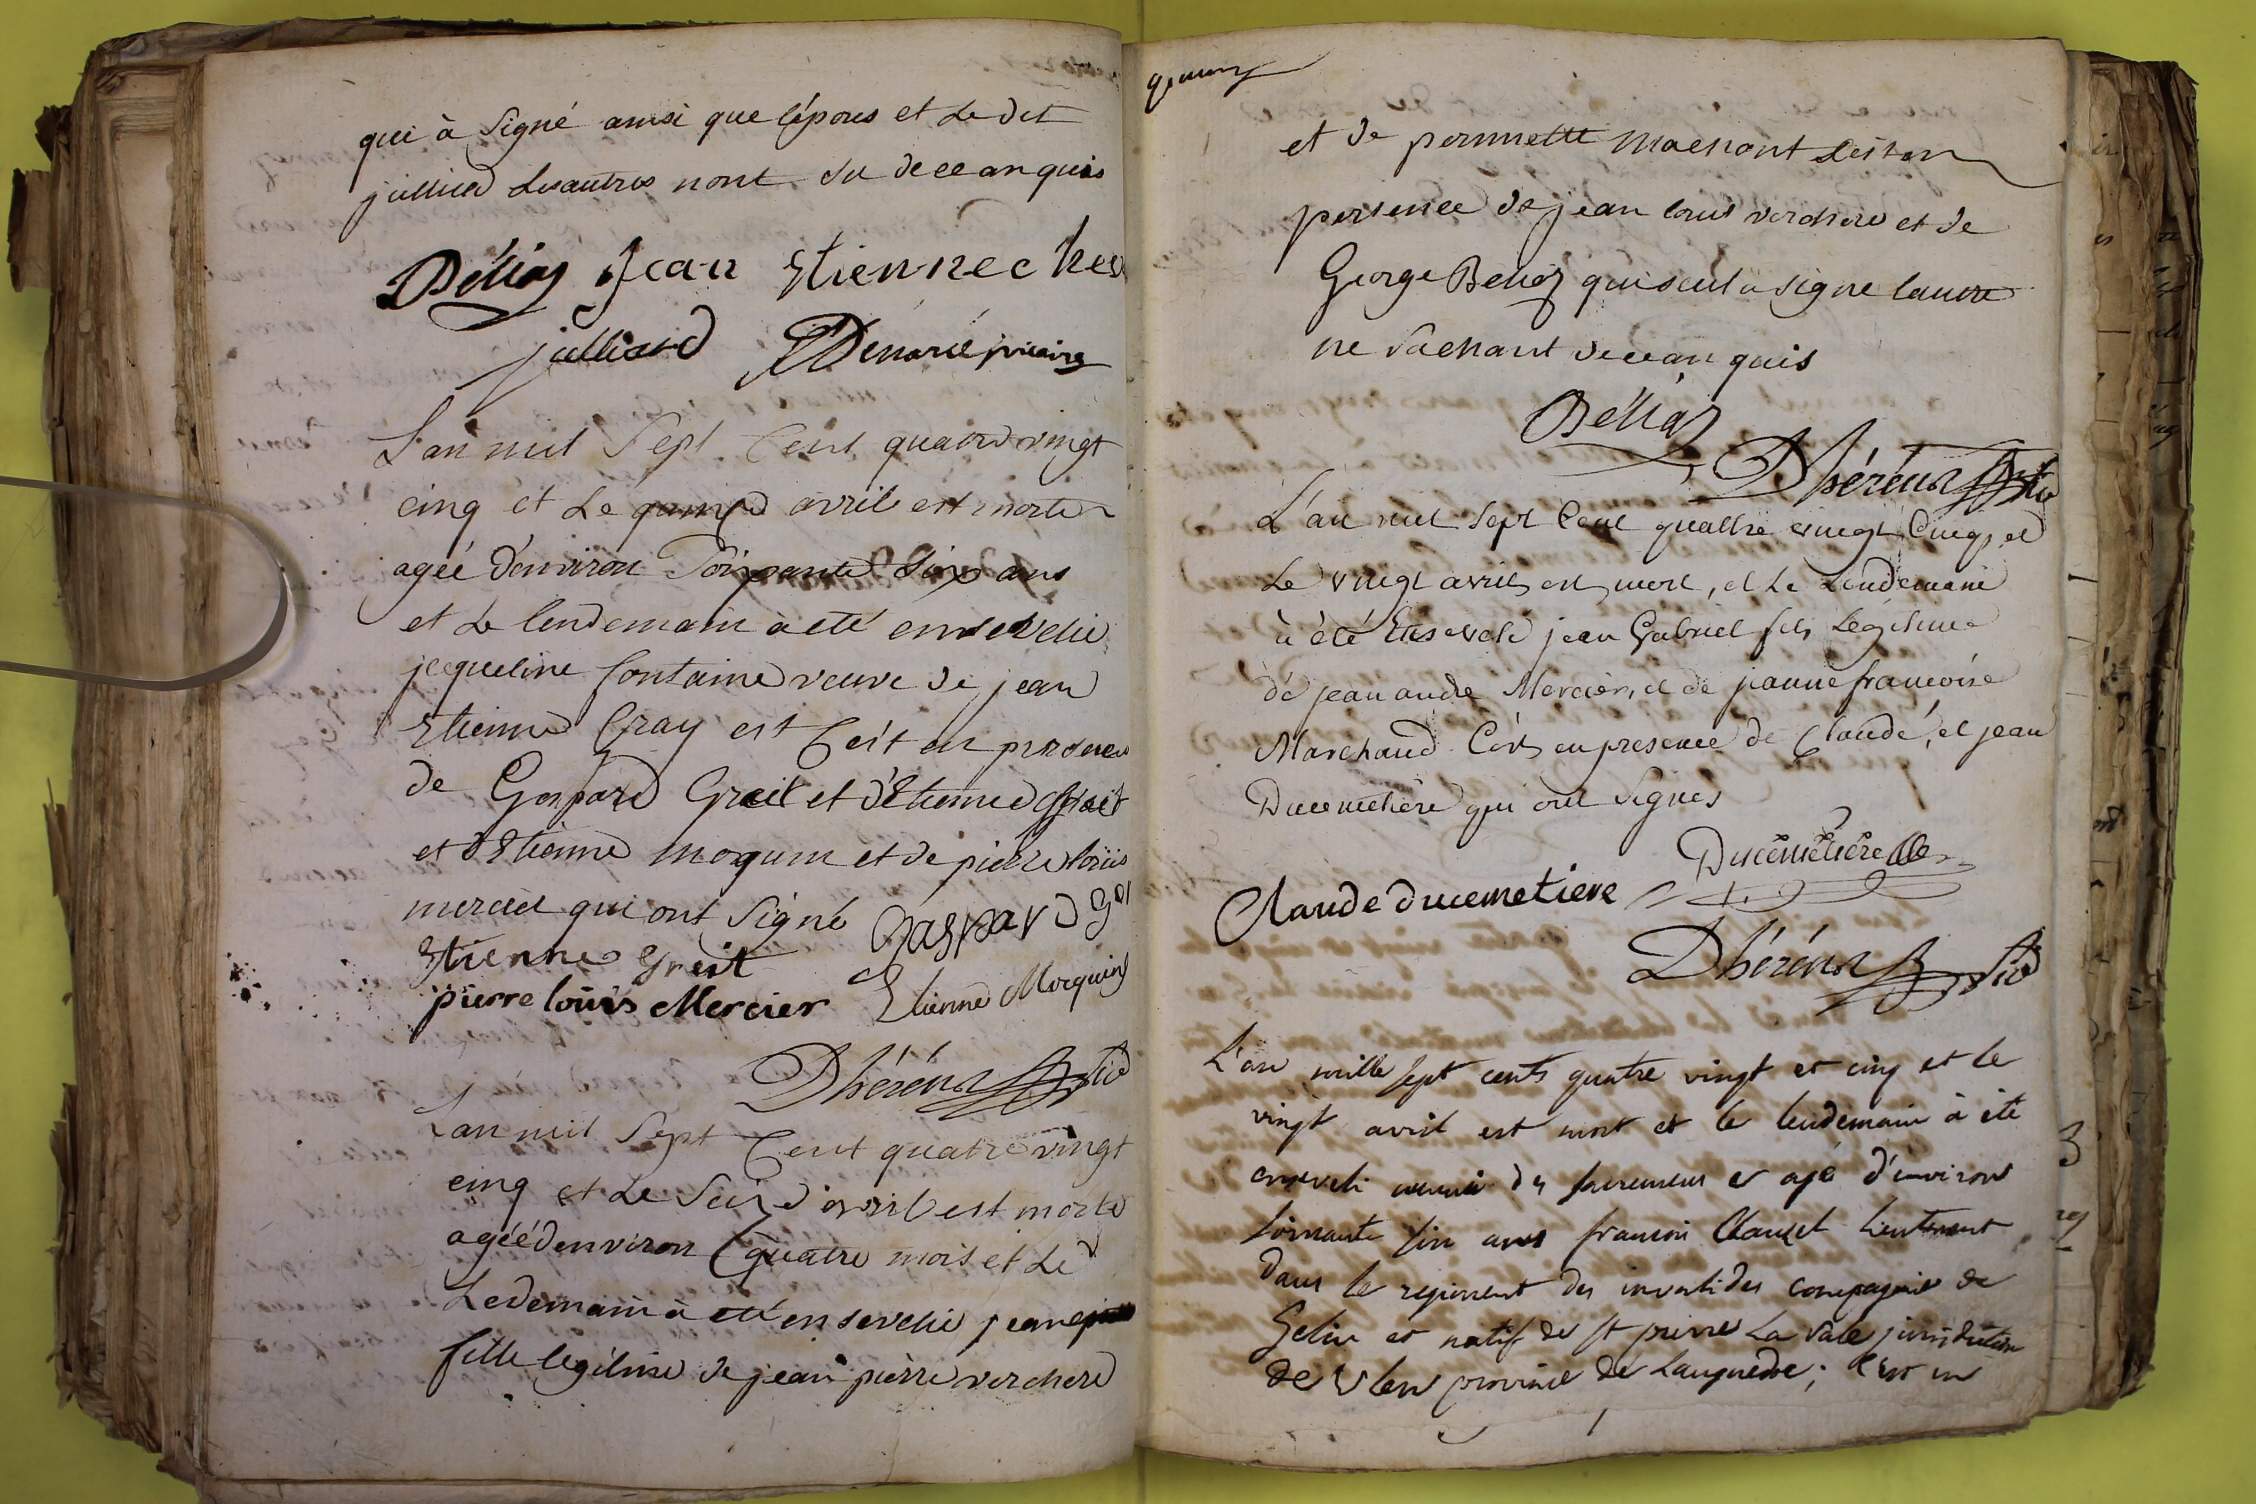 qui à Signé ainsi que lépous et Le dit
julliard Lesautres nont su de ce anquis
Déliaz Jean Etienne chev
julliard Dénarié vicaire
L'an mil Sept Cent quatre vingt
cinq et Le quinze avril est morte
agéé d'environ Soixante Six ans
et Le lendemain à eté ensevelie
jacqueline fontaine veuve de jean
Etienne Gray est C'est en presence
de Gaspard Greit et d'Etienne Greit
et d'Etienne morquin et de pierre loüis
mercier qui ont Signé Gaspard
Etienne greit
pierre loüis Mercier Etienne Morquin
Dhéréns
L'an mil Sept Cent quatre vingt
cinq et Le Seize d'avril est morte
agéé denviron quatre mois et Le
Ledemain à eté ensevelie jeanne
fille legitime de jean pierre verchere
et de pernnette machont Lest en
persence de jean louis verchere et de
George Beliaz qui seul a signe lautre
ne sachant de ce an quis
Déliaz
Dhéréns
L'an mil Sept Cent quattre vingt Cinq, et
Le vingt avril est mort, et Le Lendemain
à été Enseveli jean Gabriel fils Légitime
de jean andré Mercier, et de jeanne francoise
Marchand C'est en presence de Claude, et jean
Ducemetiére qui ont Signés
Ducemetiere
Claude ducemetiere
Dhéréns
L'an mille sept cents quatre vingt et cinq et le
vingt avril est mort et le lendemain à été
enseveli muni des sacremens et agé d'environ
soixante six ans francois Clauzel lieutenant
dans le regiment des invalides compagnie de
Gelin et natif de St pierre La vale jurisdiction
de province de Languedoc; C'est en